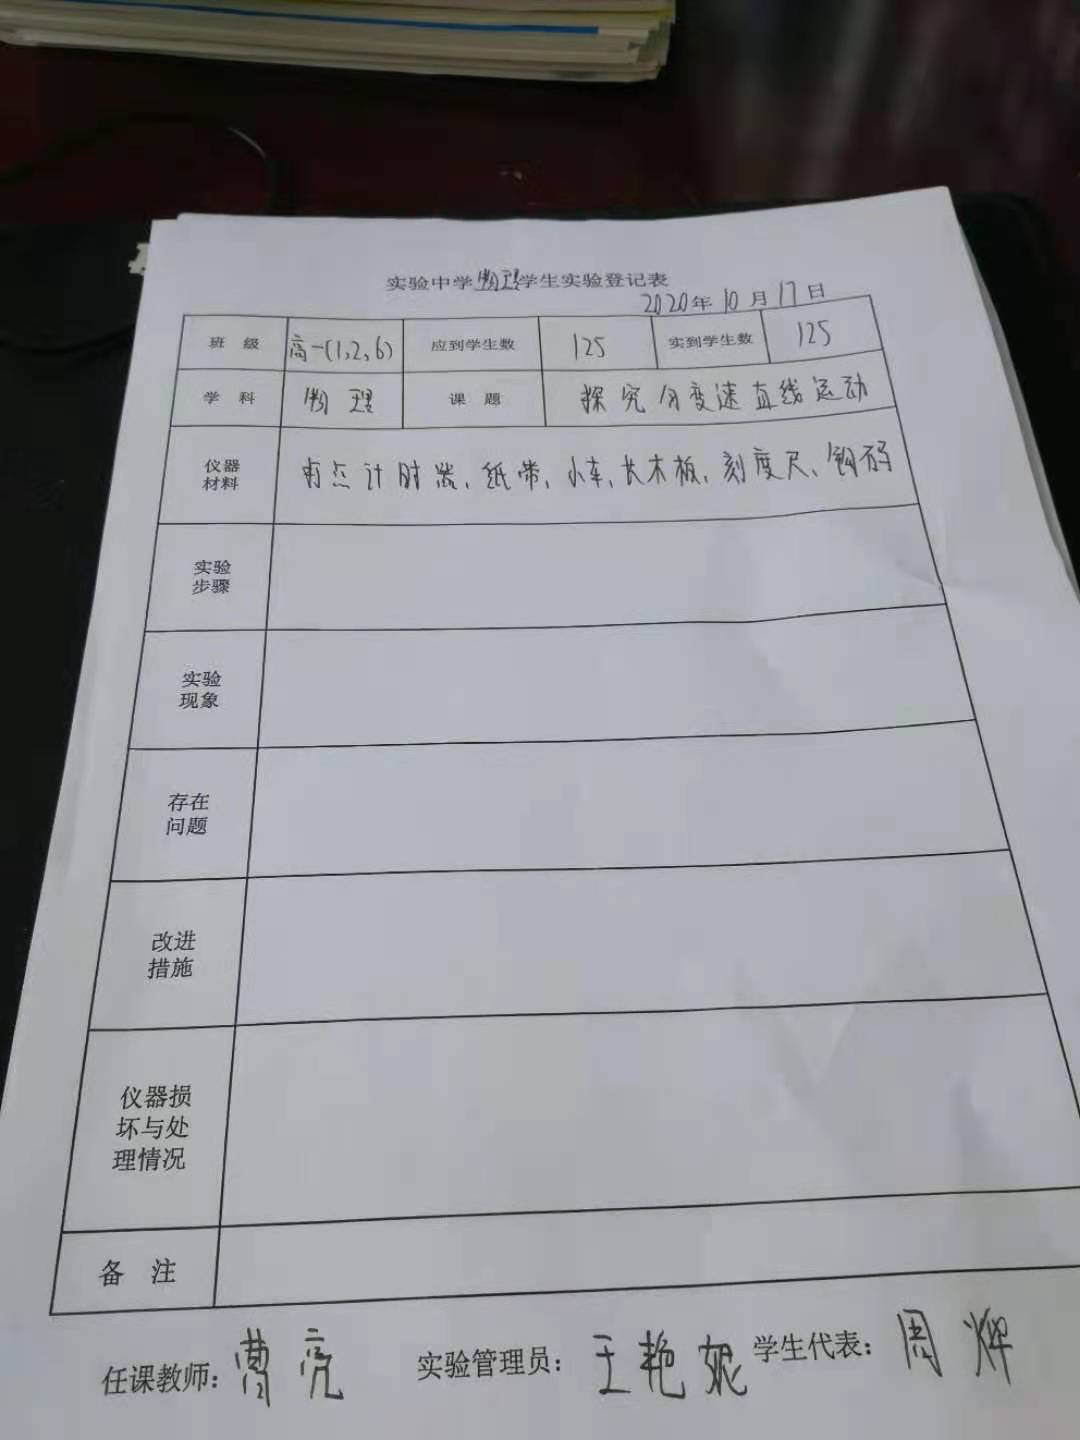 实验中学物理学生实验登记表
2020年10月17日
班 级 高一(1,2,6) 应到学生数 125 实到学生数 125
学 科 物理 课 题 探究匀变速直线运动
仪器
材料
打点计时器、纸带、小车、长木板、刻度尺、钩码
实验
步骤
实验
现象
存在
问题
改进
措施
仪器损
坏与处
理情况
备 注
任课教师：曹亮 实验管理员：王艳妮 学生代表：周烨